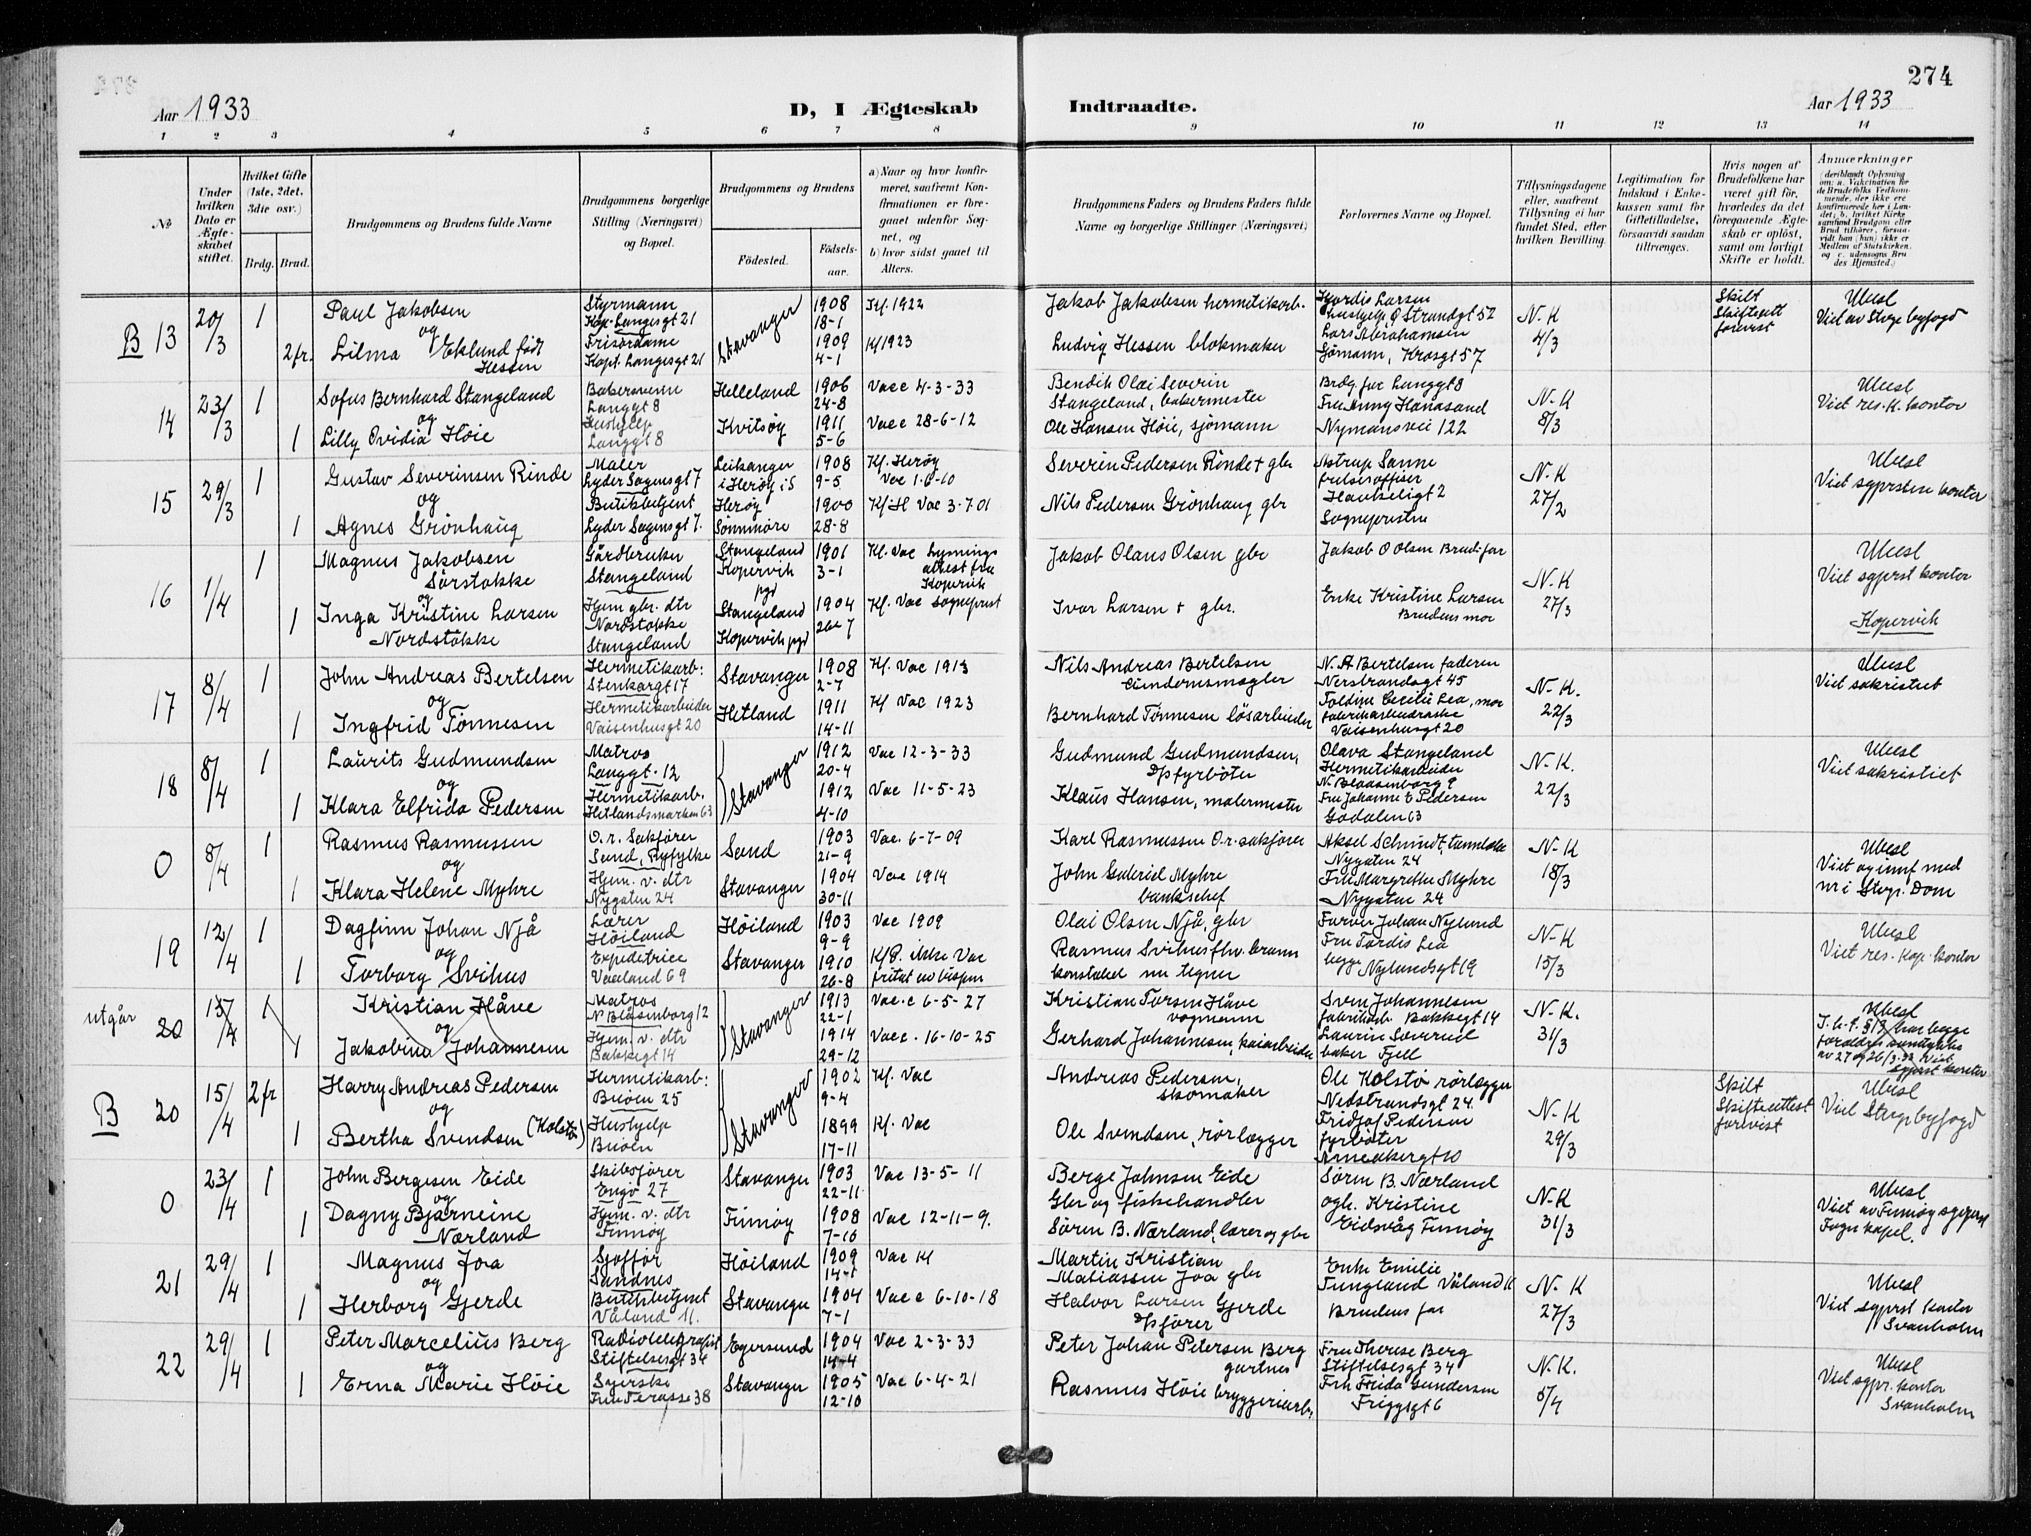 274
Aar 1933
D, I Ægteskab Indtraadte.
Aar 1933
1 2 3 4 5 6 7 8 9 10 11 12 13 14
№
Under hvilken Dato er Ægteskabet stiftet.
Hvilket Gifte (1ste, 2det, 3die osv.)
Brdg. Brud.
Brudgommens og Brudens fulde Navne
Brudgommens borgerlige Stilling (Næringsvei) og Bopæl.
Brudgommens og Brudens
Fødested.
Fødselsaar.
a) Naar og hvor konfirmeret, saafremt Konfirmationen er foregaaet udenfor Sognet, og
b) hvor sidst gaaet til Alters.
Brudgommens Faders og Brudens Faders fulde Navne og borgerlige Stillinger (Næringsvei)
Forlovernes Navne og Bopæl.
Tillysningsdagene eller, saafremt Tillysning ei har fundet Sted, efter hvilken Bevilling.
Legitimation for Indskud i Enkekassen samt for Giftetilladelse, forsaavidt saadan tiltrænges.
Hvis nogen af Brudefolkene har været gift før, hvorledes da det foregaaende Ægteskab er opløst, samt om lovligt Skifte er holdt.
Anmærkninger (deriblandt Oplysning om: a. Vakcination for de Brudefolks Vedkommende, der ikke ere konfirmerede her i Landet; b. hvilket Kirkesamfund Brudgom eller Brud tilhører, forsaavidt han (hun) ikke er Medlem af Statskirken, og c. udensogns Brudes Hjemsted.)
B 13 20/3 1 Paul Jakobsen Styrmann Kap. Langesgt 21 Stavanger 1908 18-1 Kf. 1922 Jakob Jakobsen hermetikarb. Hjørdis Larsen hushjelp Ø Strandgt 52 N.K 4/3 Skilt Skifteatt forevist Ubesl Viet av Stvgr byfogd
og
2 fr. Lilma Eklund født Hessen Frisørdame Kapt. Langesgt 21 1909 4-1 Kf 1923 Ludvig Hessen blokmaker Lars Abrahamsen Sjømann, Krosgt 57
14 23/3 1 Sofus Bernhard Stangeland Bakersvenn Langgt 8 Helleland 1906 24-8 Vacc 4-3-33 Bendik Olai Severin Stangeland, bakermester Brdg. far Langgt 8 N-K 8/3 Ubesl Viet res. K. kontor
og
1 Lilly Ovidia Høie Hushjelp Langgt 8 Kvitsøy 1911 5-6 Vacc 28-6-12 Ole Hansen Høie, sjømann Fru Anny Hanasand Nymansvei 122
15 29/3 1 Gustav Severinsen Rinde Maler Lyder Sagensgt 7 Leikanger i Herøy i S 1908 9-5 Kf. Herøy Vac 1-6-10 Severin Pedersen Rinde + gbr Astrup Sanne frelsesoffiser Haukeligt 2 N.K 27/2 Ubesl Viet sgprsten kontor
og
1 Agnes Grønhaug Butikkbetjent Lyder Sagensgt 7. Herøy Sømmøre 1900 28-8 Kf H Vac 3-7-01 Nils Pedersen Grønhaug gbr Sogneprsten
16 1/4 1 Magnus Jakobsen Sørstokke Gårdbruker Stangeland Stangeland Kopervik pgd 1901 3-1 Kf. Vac Lysnings attest fra Kopervik sogneprest Jakob Olaus Olsen gbr Jakob O Olsen Brud. far N-K 27/3 Ubesl Viet sgprst kontor
og
1 Inga Kristine Larsen Nordstokke Hjem gbr. dtr Nordstokke Stangeland Stangeland Kopervik pgd 1904 26-7 Kf. Vac Ivar Larsen + gbr. Enke Kristine Larsen Brudens mor Kopervik
17 8/4 1 John Andreas Bertelsen Hermetikarb: Stenkargt 17 Stavanger 1908 2-7 Kf. Vac 1913 Nils Andreas Bertelsen N. A Bertelsen faderen Nerstrandsgt 45 N-K. 22/3 Ubesl Viet sakristiet
og
1 Ingfrid Tønnesen Hermetikarbeider Vaisenhusgt 20 Hetland 1911 14-11 Kf Vac 1923 Bernhard Tønnesen løsarbeider Toldine Cecilie Lea, mor fabrikarbeiderske Vaisenhusgt 20
18 8/4 1 Laurits Gudmundsen Matros Langgt. 12 Stavanger 1912 20-4 Vac 12-3-33 Gudmund Gudmundsen, Dpfyrbøter Olava Stangeland Hermetikarbeider N. Blaasenborg 9 N-K. 22/3 Ubesl Viet sakristiet
og
1 Klara Elfrida Pedersen Hermetikarb. Hetlandsmarken 63 1912 4-10 Vac 11-5-23 Klaus Hansen, malermester Fru Johanne E Pedersen Godalen 63
0 8/4 1 Rasmus Rasmussen O.r. Sakfører Sand, Ryfylke Sand 1903 21-9 Vac. 6-7-09 Karl Rasmussen O.r-sakfører Aksel Schmidt, tannlæke Nygaten 24 N-K 18/3 Ubesl Viet og innf med nr i Stvgr. Dom
og
1 Klara Helene Myhre Hjem. v. dtr Nygaten 24 Stavanger 1904 30-11 Vac 1914 John Gabriel Myhre banksjef Fru Margrethe Myhre Nygaten 24
19 12/4 1 Dagfinn Johan Njå Lærer Høiland Høiland 1903 9-9 Vac 1909 Olai Olsen Njå, gbr Farver Johan Nylund N-K 15/3 Ubesl Viet res. kap. kontor
og
1 Torborg Svihus Expeditrice Vaaland 69 Stavanger 1910 26-8 Kf P. ikke Vac fritat av bispen Rasmus Svihus fhv. brann konstabel nu tegner Fru Tordis Lea begge Nylundsgt 19
utgår 20 15/4 1 Kristian Håve Matros N Blåsenborg 12 Stavanger 1913 22-1 Vac. c 6-5-27 Kristian Torsen Håve vognmann Sven Johannesen fabrikarb Bakkegt 14 N-K. 31/3 Ubesl
og
1 Jakobina Johannesen Hjem. v. dtr Bakkegt 14 1914 29-12 Vacc. 16-10-25 Gerhard Johannesen, kaiarbeider baker Fjell
B 20 15/4 2 fr Harry Andreas Pedersen Hermetikarb: Buøen 25 Stavanger 1902 9-4 Kf. Vac Andreas Pedersen, skomaker Ole Kolstø rørlegger Nedstrandsgt 24 N-K 29/3 Skilt Skifteattest forevist Ubesl Viet Stvgr byfogd
og
1 Bertha Svendsen (Kolstø) Hushjelp Buøen 1899 17-11 Kf. Vac Ole Svendsen, rørlegger Fridjof Pedersen fyrbøter
0 23/4 1 John Bergesen Eide Skibsfører Engø 27 Stavanger 1903 22-11 Vac 13-5-11 Berge Johnsen Eide Gbr og fiskehandler Søren B. Nærland N-K 31/3 Ubesl Viet av Finnøy sgprst Fogn kapel.
og
1 Dagny Bjarneine Nærland Hjem. v. dtr Finnøy Finnøy 1908 7-10 Vac 12-11-9. Søren B. Nærland, lærer og gbr ogh. Kristine Eidsvåg Finnøy
21 29/4 1 Magnus Joa Sjoffør Sandnes Høiland 1909 14-1 Vac Kf Martin Kristian Matiassen Joa gbr Enke Emilie Tungland Våland 11 N-K 27/3 Ubesl Viet sgprst kontor Svanholm
og
1 Herborg Gjerde Butikkbetjent Våland 11. Stavanger 1904 7-1 Vac c 6-10-18 Halvor Larsen Gjerde Dpfører Brudens far
22 29/4 1 Peter Marcelius Berg Radiotelegrafist Stiftelsesgt 34 Egersund 1904 14-4 Vac 2-3-33 Peter Johan Petersen Berg gartner Fru Therese Berg Stiftelsesgt 34 N.K. 5/4 Ubesl Viet sgpr. kontor Svanholm
og
1 Erna Marie Høie Syerske Fru Terasse 38 Stavanger 1905 12-10 Vac 6-4-21 Rasmus Høie bryggeriarb. Frk Frida Gundersen Friggsgt 6